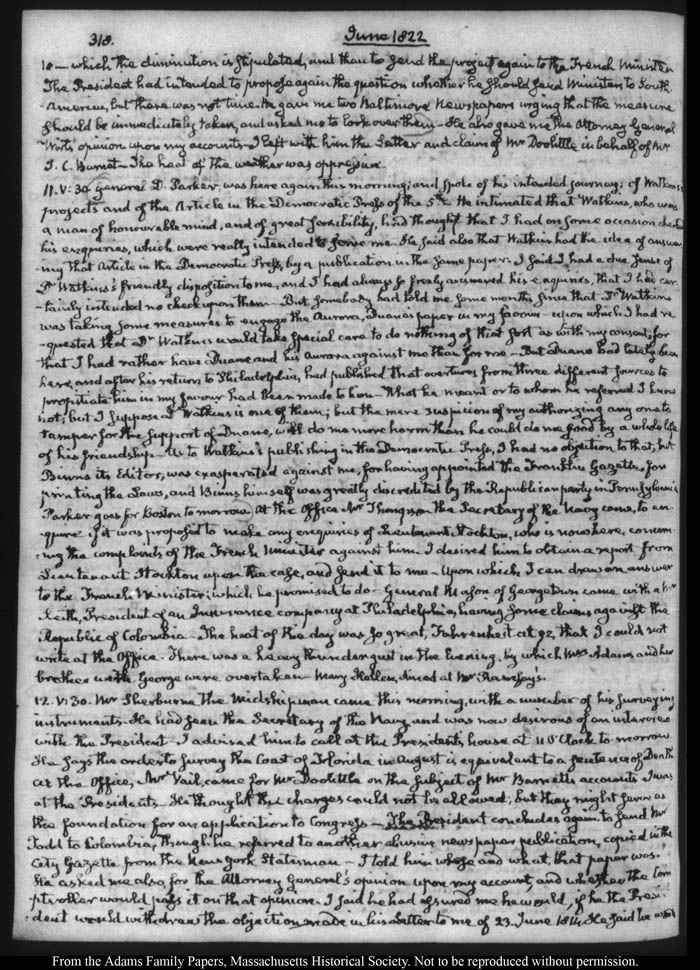 318.
June 1822
10 — which the diminution is stipulated, and then to send the project again to the French Minister.
The President had intended to propose again the question whether he should send Ministers to South
America, but there was not time. He gave me two Baltimore Newspapers urging that the measure
should be immediately taken, and asked me to look over them — He also gave me the Attorney General
Wirt's opinion upon my accounts — I left with him the Letter and claim of Mr Doolittle in behalf of Mr
I. C. Barnet — The heat of the weather was oppressive.
11. V: 30. General D. Parker, was here again this morning; and spoke of his intended journey; of Watkins's
projects and of the Article in the Democratic Press of the 5th. He intimated that Watkins, who was
a man of honourable mind, and of great sensibility, had thought that I had on some occasion checked
his enquiries, which were really intended to serve me. He said also that Watkins had the idea of answer
-ing that Article in the Democratic Press, by a publication in the same paper. I said I had a due sense of
Dr Watkins's friendly disposition to me, and I had always so freely answered his enquiries, that I had cer
-tainly intended no check upon them — But somebody had told me some months since that Dr Watkins
was taking some measures to engage the Aurora, Duane's paper in my favour — upon which I had re
-quested that Dr Watkins would take special care to do nothing of that sort as with my consent; for
that I had rather have Duane and his Aurora against me than for me — But Duane had lately been
here, and after his return to Philadelphia, had published that overtures from three different sources to
propitiate him in my favour had been made to him — What he meant or to whom he referred I know
not; but I suppose Dr Watkins is one of them; but the mere suspicion of my authorizing any one to
tamper for the support of Duane, will do me more harm than he could do me good by a whole life
of his friendship. As to Watkins's publishing in the Democratic Press, I had no objection to that, but
Binns its Editor, was exasperated against me, for having appointed the Franklin Gazette, for
printing the Laws, and Binns himself was greatly discredited by the Republican party in Pennsylvania
Parker goes for Boston to-morrow. At the Office Mr Thompson the Secretary of the Navy came, to en
-quire if it was proposed to make any enquiries of Lieutenant Stockton, who is now here, concern
-ing the complaints of the French Minister against him. I desired him to obtain a report from
Lieutenant Stockton upon the case, and send it to me. Upon which, I can draw an answer
to the French Minister; which he promised to do — General Mason of Georgetown came with a Mr
Leith, President of an Insurance company at Philadelphia, having some claims against the
Republic of Colombia — The heat of the day was so great, Fahrenheit at 92, that I could not
write at the Office. There was a heavy thunder gust in the Evening, by which Mrs Adams, and her
brother with George were overtaken. Mary Hellen, dined at Mr Ramsay's.
12. V: 30. Mr Sherburne the Midshipman came this morning, with a number of his surveying
instruments. He had seen the Secretary of the Navy and was now desirous of an interview
with the President — I advised him to call at the President's house at 11 O'Clock to-morrow.
He says the order to survey the Coast of Florida in August is equivalent to a sentence of Death
At the Office, Mr Vail, came for Mr Doolittle on the subject of Mr Barnett's accounts I was
at the President's — He thought the charges could not be allowed; but they might serve as
the foundation for an application to Congress — The President concludes again to send Mr
Todd to Colombia, though he referred to another abusive newspaper publication, copied in the
City Gazette from the New York Statesman — I told him whose and what, that paper was.
He asked me also, for the Attorney General's opinion upon my account and whether the Com
-ptroller would pass it on that opinion. I said he had assured me he would, if he the Presi
-dent would withdraw the objection made in his Letter to me of 23. June 1814. He said he would
From the Adams Family Papers, Massachusetts Historical Society. Not to be reproduced without permission.